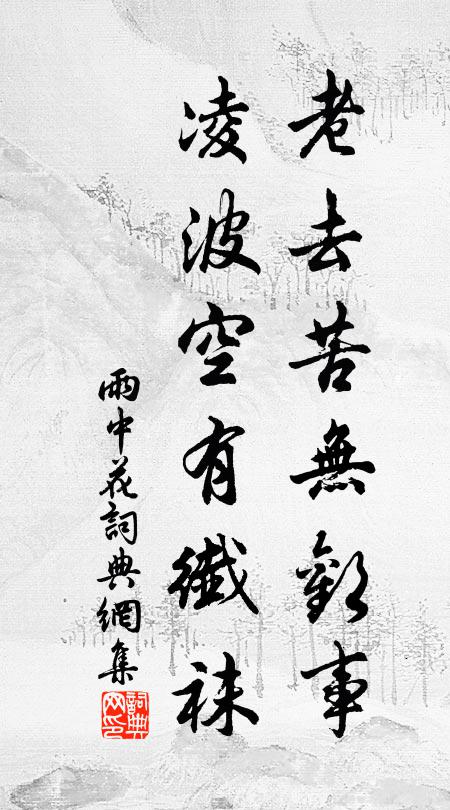 老去苦無歡事
凌波空有纖袜
雨中花詞典網集
詞典网印